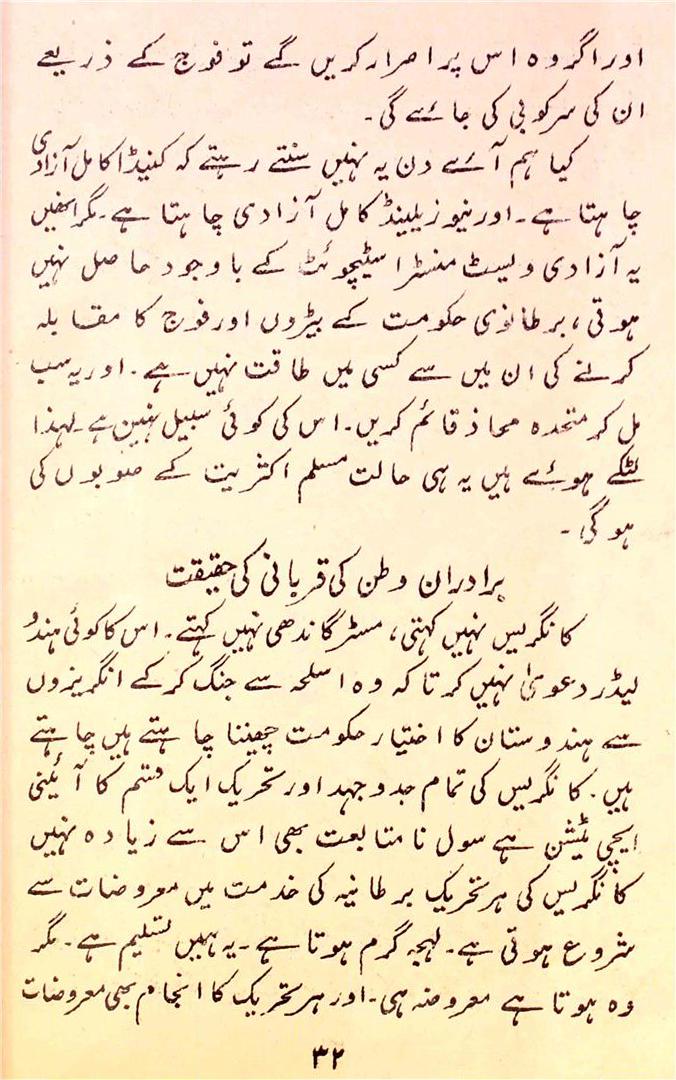 اور اگر وہ اس پر اصرار کریں گے تو فوج کے ذریعے
ان کی سرکوبی کی جائے گی۔
کیا ہم آئے دن یہ نہیں سنتے رہتے کہ کنیڈا کامل آزادی
چاہتا ہے۔ اور نیوزیلینڈ کامل آزادی چاہتا ہے۔ مگر انھیں
یہ آزادی ویسٹ منسٹر اسٹیچوئٹ کے باوجود حاصل نہیں
ہوتی، برطانوی حکومت کے بیڑوں اور فوج کا مقابلہ
کرنے کی ان میں سے کسی میں طاقت نہیں ہے۔ اور یہ سب
مل کر متحدہ محاذ قائم کریں۔ اس کی کوئی سبیل نہیں ہے۔ لہذا
لٹکے ہوئے ہیں یہ ہی حالت مسلم اکثریت کے صوبوں کی
ہوگی۔
برادران وطن کی قربانی کی حقیقت
کانگریس نہیں کہتی، مسٹر گاندھی نہیں کہتے۔ اس کا کوئی ہندو
لیڈر دعویٰ نہیں کرتا کہ وہ اسلحہ سے جنگ کرکے انگریزوں
سے ہندوستان کا اختیار حکومت چھیننا چاہتے ہیں چاہتے
ہیں۔ کانگریس کی تمام جدوجہد اور تحریک ایک قسم کا آئینی
ایجی ٹیشن ہے سول نامتابعت بھی اس سے زیادہ نہیں
کانگریس کی ہر تحریک برطانیہ کی خدمت میں معروضات سے
شروع ہوتی ہے۔ لہجہ گرم ہوتا ہے۔ یہ ہمیں تسلیم ہے۔ مگر
وہ ہوتا ہے معروضہ ہی۔ اور ہر تحریک کا انجام بھی معروضات
۳۲